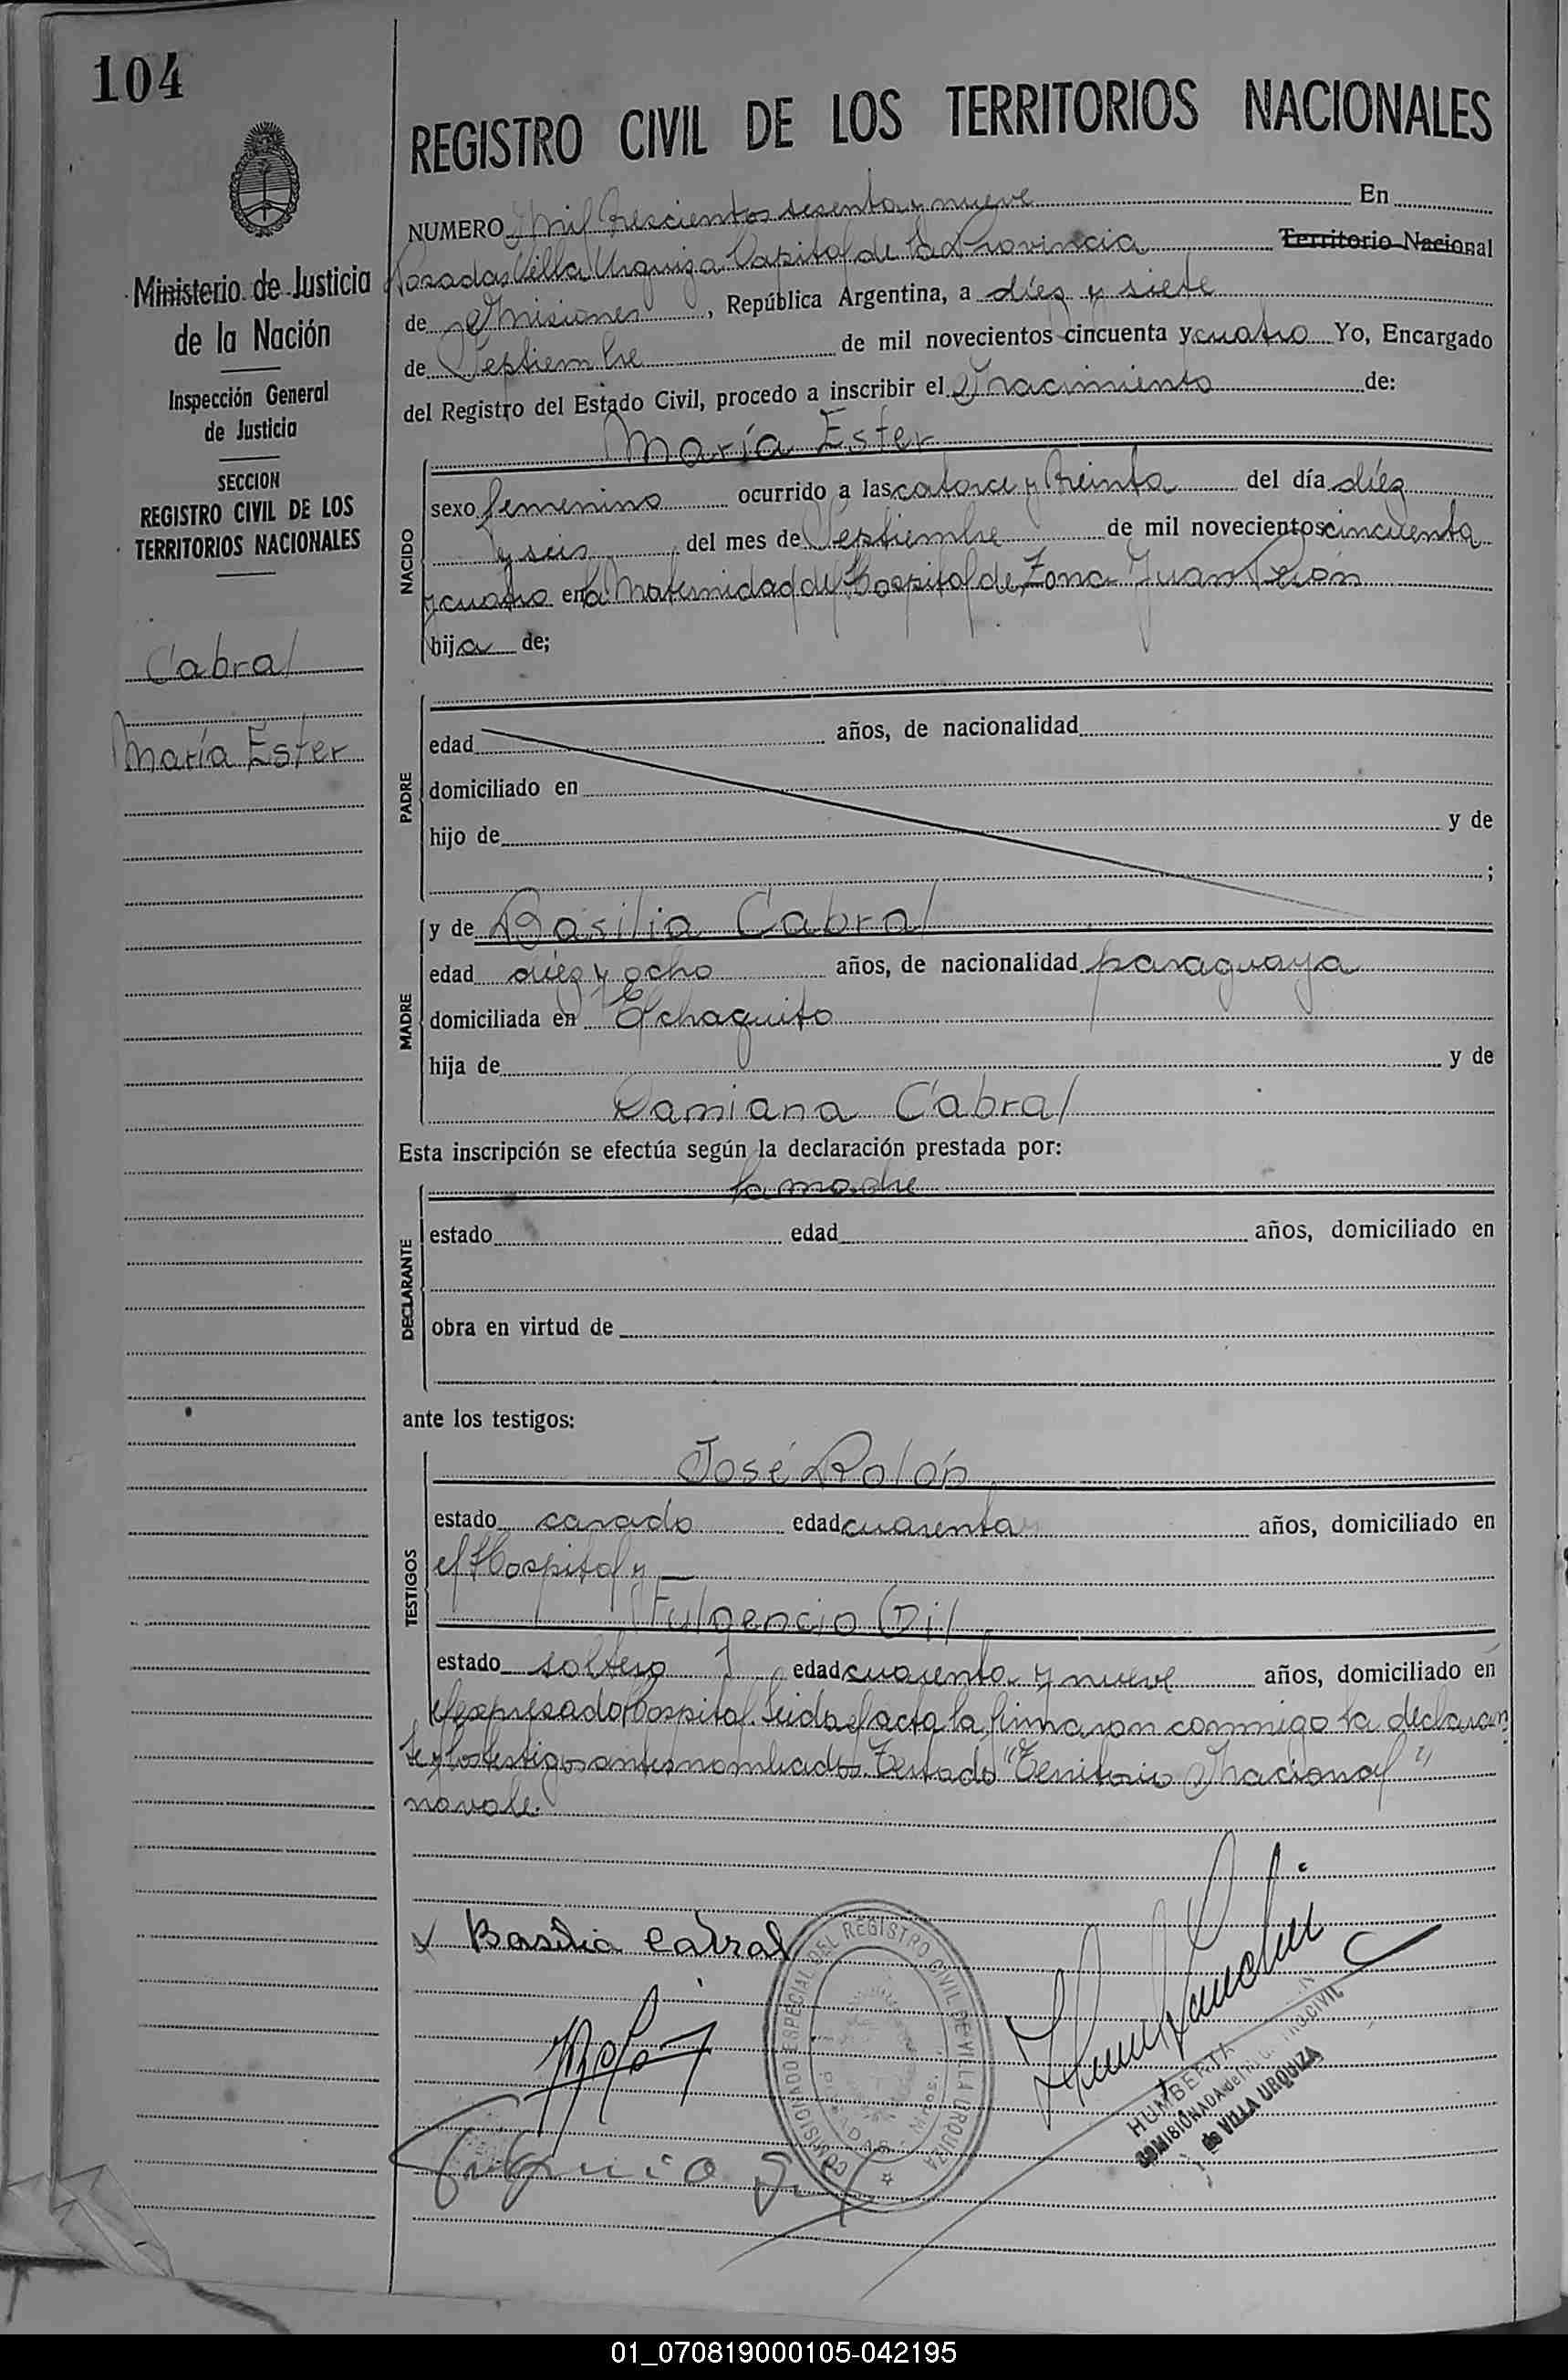 104
Ministerio de Justicia
de la Nación
Inspección General
de Justicia
SECCION
REGISTRO CIVIL DE LOS
TERRITORIOS NACIONALES
Cabral
María Ester
REGISTRO CIVIL DE LOS TERRITORIOS NACIONALES
NUMERO Mil trescientos sesenta y nueve En
Posadas Villa Urquiza Capital de la Provincia Territorio Nacional
de Misiones, República Argentina, a diez y siete
de Septiembre de mil novecientos cincuenta y cuatro Yo, Encargado
del Registro del Estado Civil, procedo a inscribir el Nacimiento de:
María Ester
NACIDO
sexo femenino ocurrido a las catorce y treinta del día diez
y seis del mes de Septiembre de mil novecientos cincuenta
y cuatro en la Maternidad del Hospital de Zona Juan Perón
hija de;
PADRE
edad años, de nacionalidad
domiciliado en
hijo de y de
;
MADRE
y de Basilia Cabral
edad diez y ocho años, de nacionalidad paraguaya
domiciliada en El chaquito
hija de y de
Damiana Cabral
Esta inscripción se efectúa según la declaración prestada por:
DECLARANTE
la madre
estado edad años, domiciliado en
obra en virtud de
ante los testigos:
TESTIGOS
José Rolón
estado casado edad cuarenta años, domiciliado en
el Hospital y
Fulgencio Gil
estado soltero edad cuarenta y nueve años, domiciliado en
el expresado Hospital. Leida el acta la firmaron conmigo la declaran
te y los testigos antes nombrados. Testado "Territorio Nacional"
no vale.
Basilia Cabral
COMISIONADO ESPECIAL DEL REGISTRO CIVIL DE VILLA URQUIZA
HUMBERTA
COMISIONADA del CIVIL
de VILLA URQUIZA
01_070819000105-042195